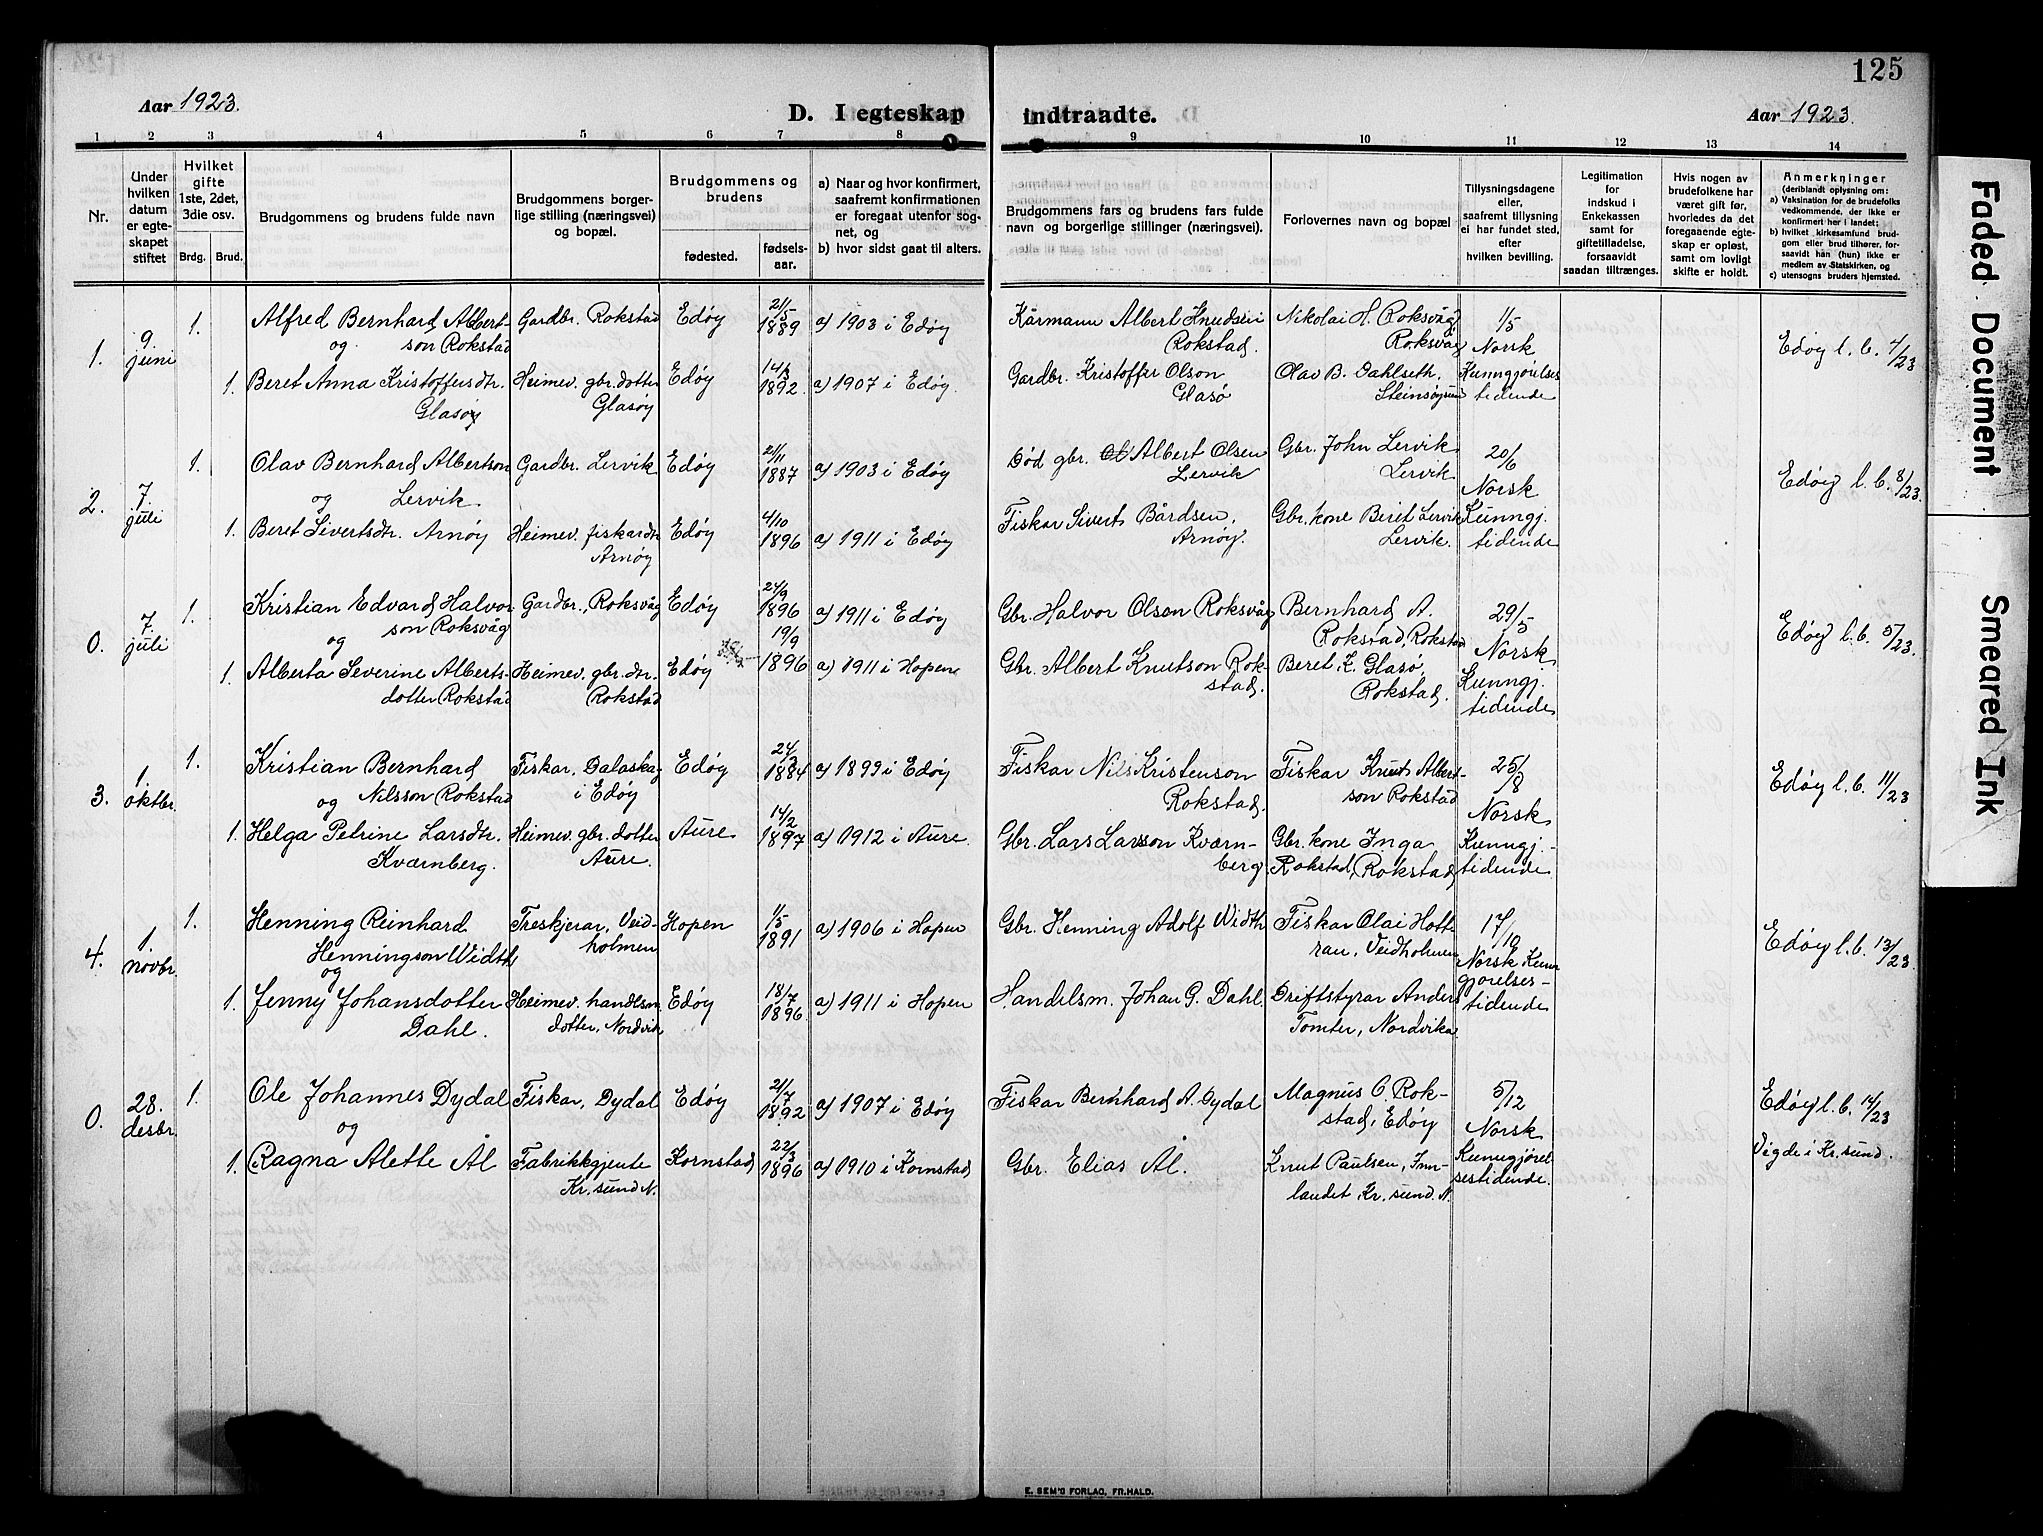 125
Aar 1923.
D. I egteskap indtraadte.
Aar 1923.
1 2 3 4 5 6 7 8 9 10 11 12 13 14
Nr.
Under hvilken datum er egteskapet stiftet
Hvilket gifte 1ste, 2det, 3die osv.
Brdg. Brud.
Brudgommens og brudens fulde navn
Brudgommens borgerlige stilling (næringsvei) og bopæl.
Brudgommens og brudens
fødested. fødselsaar.
a) Naar og hvor konfirmert, saafremt konfirmationen er foregaat utenfor sognet, og
b) hvor sidst gaat til alters.
Brudgommens fars og brudens fars fulde navn og borgerlige stillinger (næringsvei).
Forlovernes navn og bopæl
Tillysningsdagene eller, saafremt tillysning ei har fundet sted, efter hvilken bevilling.
Legitimation for indskud i Enkekassen samt for giftetilladelse, forsaavidt saadan tiltrænges.
Hvis nogen av brudefolkene har været gift før, hvorledes da det foregaaende egteskap er opløst, samt om lovligt skifte er holdt.
Anmerkninger (deriblandt oplysning om:
a) Vaksination for de brudefolks vedkommende, der ikke er konfirmert her i landet;
b) hvilket kirkesamfund brudgom eller brud tilhører, forsaavidt han (hun) ikke er medlem av Statskirken, og
c) utensogns bruders hjemsted.
1. 9. juni
1. Alfred Bernhard Albertson Rokstad Gardbr. Rokstad Edøy 21/5 1889 a) 1903 i Edøy Kårmann Albert Knudsen Rokstad. Nikolai H. Roksvåg, Roksvåg 1/5 Norsk Edøy l. b. 7/23
og
1. Beret Anna Kristoffersdtr. Glasøy Heimev. gbr. dotter Glasøy Edøy 14/3 1892. a) 1907 i Edøy. Gardbr. Kristoffer Olson Glasø Olav B. Dahlseth, Steinsøysund Kunngjørelsestidende
2. 7. juli
1. Olav Bernhard Albertson Lervik Gardbr. Lervik Edøy 21/11 1887 a) 1903 i Edøy Død gbr. Albert Olsen Lervik Gbr. John Lervik Lervik 20/6 Norsk Edøy l. b. 8/23.
og
1. Beret Sivertsdtr. Arnøy Heimev. fiskardtr Arnøy Edøy 4/10 1896 a) 1911 i Edøy Fiskar Sivert Bårdsen, Arnøy. Gbr. kone Beret Lervik Lervik. Kunngj. tidende
0. 7. juli
1. Kristian Edvard Halvorson Roksvåg Gardbr., Roksvåg Edøy 24/9 1896 a) 1911 i Edøy Gbr. Halvor Olson Roksvåg Bernhard A. Rokstad, Rokstad 29/5 Norsk Edøy l. b. 5/23.
og
1. Alberta Severine Albertsdotter Rokstad Heimev. gbr. dtr. Rokstad Edøy 19/9 1896 a) 1911 i Hopen Gbr. Albert Knutson Rokstad. Beret K. Glasø, Rokstad. Kunngj. tidende
3. 1. oktbr.
1. Kristian Bernhard Nilsson Rokstad Fiskar, Dalaskag i Edøy Edøy 1884 a) 1899 i Edøy Fiskar Nils Kristenson Rokstad. Fiskar Knut Albertson Rokstad 25/8 Norsk Edøy l. b. 11/23
og
1. Helga Petrine Larsdtr. Kværnberg. Heimev. gbr. dotter Aure. Aure 14/2 1897 a) 1912 i Aure. Gbr. Lars Larsson Kværnberg Gbr. kone Inga Rokstad, Rokstad, Kunngj.-tidende
4. 1. novbr.
1. Henning Reinhard Henningson Width Treskjerar, Veidholmen Hopen 1/5 1891 a) 1906 i Hopen Gbr. Henning Adolf Width Fiskar Olai Hottran, Veidholmen 17/10 Norsk Kunngjørelses- Edøy l. b. 13/23.
og
1. Jenny Johansdotter Dahl. Heimev. handlsm. dotter, Nordvik Edøy 18/7 1896. a) 1911 i Hopen Handelsm. Johan G. Dahl Driftstyrar Anders Tomter, Nordvika tidende
0. 28. desbr.
1. Ole Johannes Dydal Fiskar, Dydal Edøy 21/7 1892 a) 1907 i Edøy Fiskar Bernhard A. Dydal Magnus O. Rokstad, Edøy 5/12 Norsk Edøy l. b. 14/23
og
1. Ragna Alette Ål Fabrikkgjente Kr. sund N. Kornstad 22/3 1896 a) 1910 i Kornstad Gbr. Elias Ål. Knut Paulsen, Innlandet, Kr. sund. N. Kunngjørelsestidende. Vigde i Kr. sund.
E. SEM'S FORLAG, FR.HALD.
Faded Document
Smeared Ink